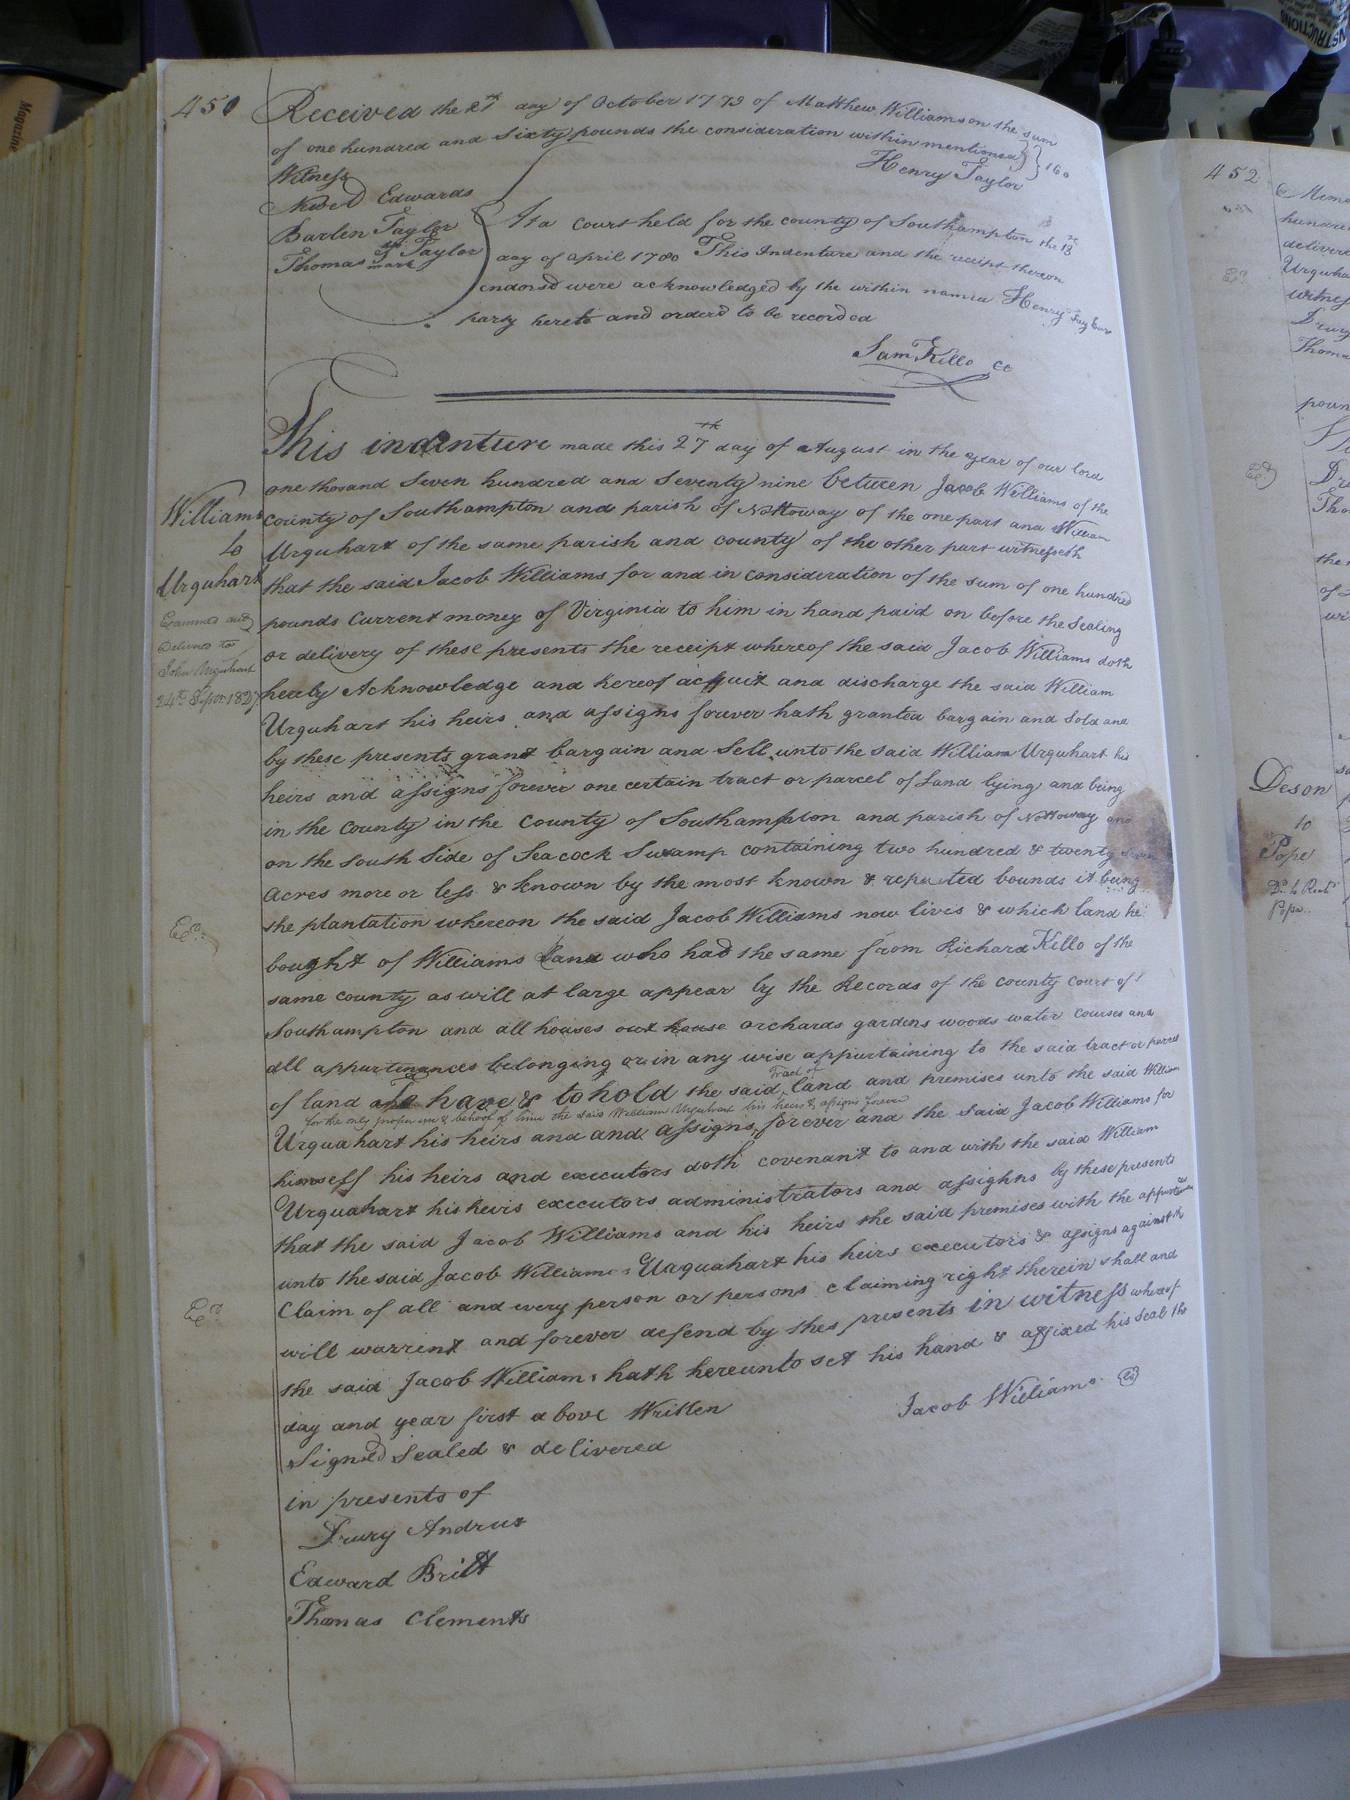 450
Received the 27th day of October 1779 of Matthew Williamson the sum
of one hundred and Sixty pounds the consideration within mentioned } 160
Henry Taylor
Witness
Newed Edwards
Barten Taylor
Thomas Taylor
mark
At a court held for the county of Southampton the 13th
day of April 1780 This Indenture and the receipt thereon
endorsd were acknowledged by the within named Henry Taylor
party hereto and orderd to be recorded
Sam Kello CC
This indenture made this 27th day of August in the year of our lord
one thosand Seven hundred and Seventy nine between Jacob Williams of the
County of Southampton and parish of Nottoway of the one part and William
Urquhart of the same parish and county of the other part witnesseth
that the said Jacob Williams for and in consideration of the sum of one hundred
pounds Current money of Virginia to him in hand paid on before the Sealing
or delivery of these presents the receipt whereof the said Jacob Williams doth
hereby Acknowledge and hereof acquit and discharge the said William
Urquhart his heirs and assigns forever hath granted bargain and Sold and
by these presents grant bargain and Sell unto the said William Urquhart his
heirs and assigns forever one certain tract or parcel of Land lying and being
in the County in the County of Southampton and parish of Nottoway and
on the South Side of Seacock Swamp containing two hundred & twenty seven
Acres more or less & known by the most known & reputed bounds it being
the plantation whereon the said Jacob Williams now livis & which land he
bought of Williams Land who had the same from Richard Kello of the
same county as will at large appear by the Records of the county Court of
Southampton and all houses out house orchards gardens woods water courses and
all appurtenances belonging or in any wise appurtaining to the said tract or parcel
of land and To have & to hold the said Tract of land and premises unto the said William
for the only proper use & behoof of him the said William Urquhart his heirs & assigns forever
Urquahart his heirs and and Assigns forever and the said Jacob Williams for
himself his heirs and executors doth covenant to and with the said William
Urquahart his heirs executors administrators and assighns by these presents
that the said Jacob Williams and his heirs the said premises with the appurtenances
unto the said Jacob Williams Uaquahart his heirs executors & assigns against the
Claim of all and every person or persons claiming right therein shall and
will warrent and forever defend by thes presents in witness whereof
the said Jacob Williams hath hereunto set his hand & affixed his Seal the
day and year first above Written
Jacob Williams
Signed Sealed & delivered
in presents of
Drury Andrus
Edward Britt
Thomas Clements
Williams
to
Urquhart
Examined and
Delivered to
John Urquhart
24th Sepr 1827
Ed
Ed
452
Memo
hundred
delivere
Urquha
witness
Drury
Thoma
poun
Dru
Tho
the
of
wi
Deson
to
Pope
Do to Robt
Pope
Magazine